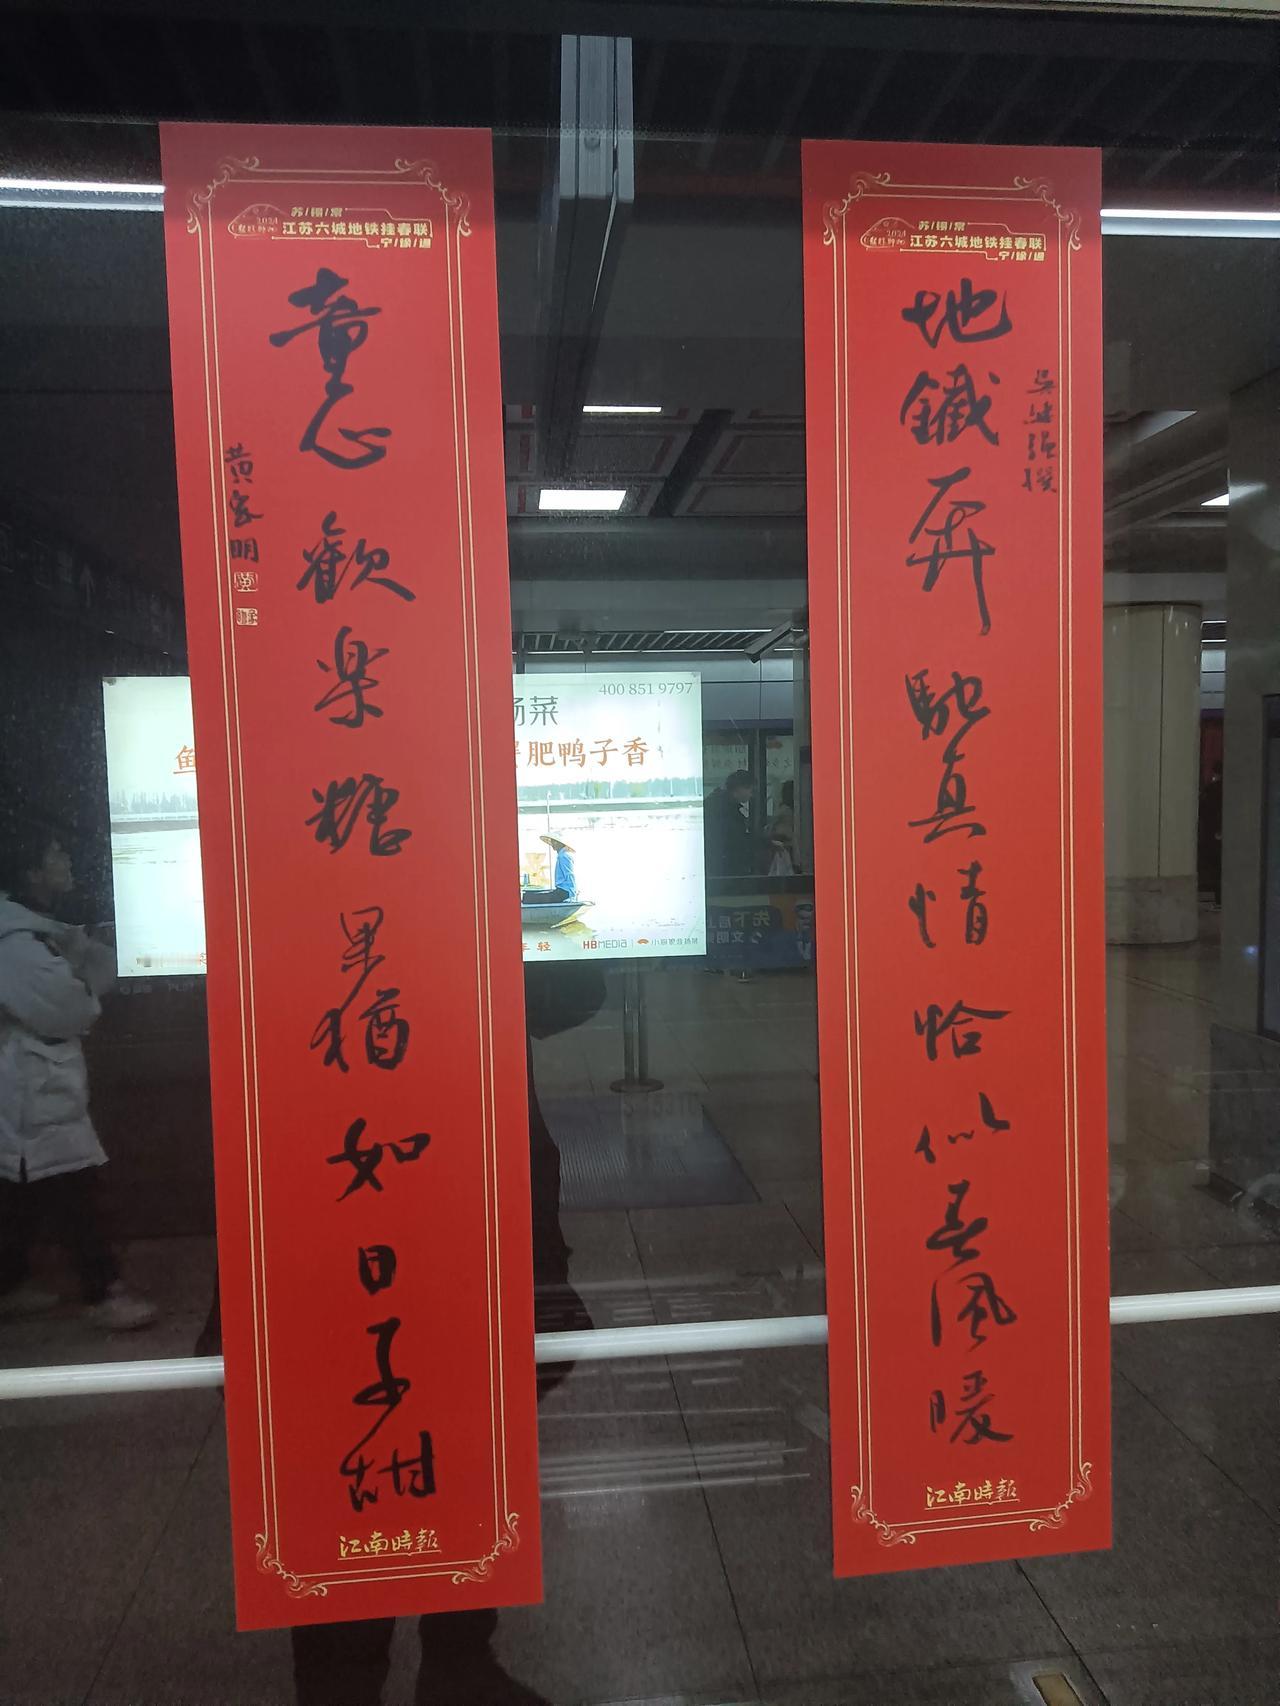 苏/锡/常
2024
江苏六城地铁挂春联
宁/徐/通
地鐵奔馳真情恰似春風暖
吳继强撰
江南時報
苏/锡/常
2024
江苏六城地铁挂春联
宁/徐/通
童心歡楽糖果猶如日子甜
黄家明
江南時報
400 851 9797
汤菜
鱼
肥鸭子香
年轻
HBMEDIA
先下后上
文明